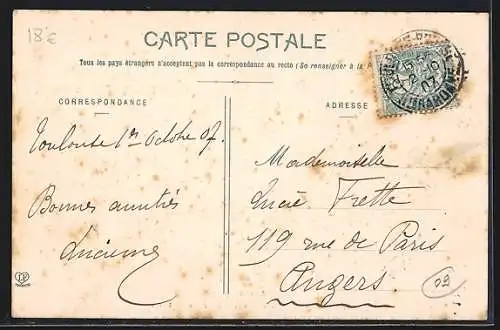 18 €
CARTE POSTALE
Tous les pays étrangers n'acceptent pas la correspondance au recto (Se renseigner à la
CORRESPONDANCE
ADRESSE
Toulouse 1er Octobre 07.
Bonnes amitiés
Mademoiselle
Lucie Frette
119 rue de Paris
Angers
02